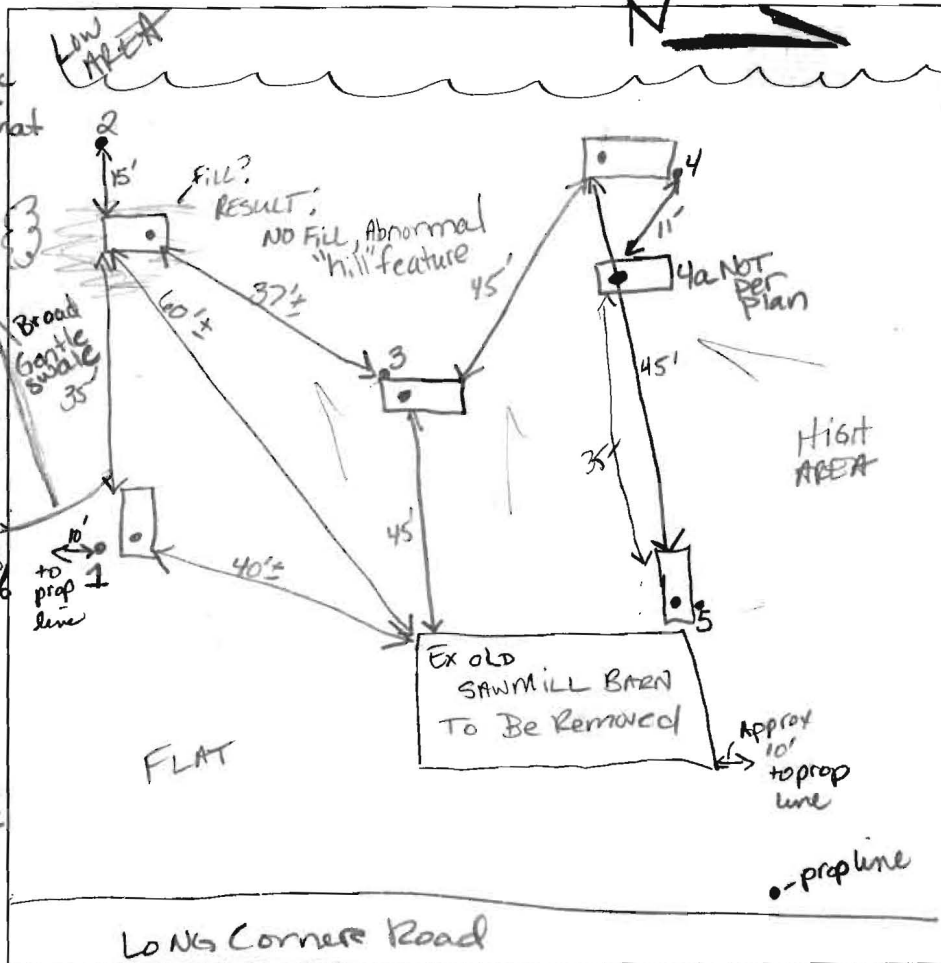 N
LOW
AREA
2
15'
Fill?
RESULT:
NO Fill, Abnormal
"hill" feature
4
11'
4a NOT
per
plan
45'
37'±
60'±
Broad
Gentle
swale
35'
3
45'
35'
HIGH
AREA
45'
10'
to
prop
line
1
40'±
5
EX OLD
SAWMILL BARN
To Be Removed
Approx
10'
to prop
line
FLAT
propline
LONG Corner Road